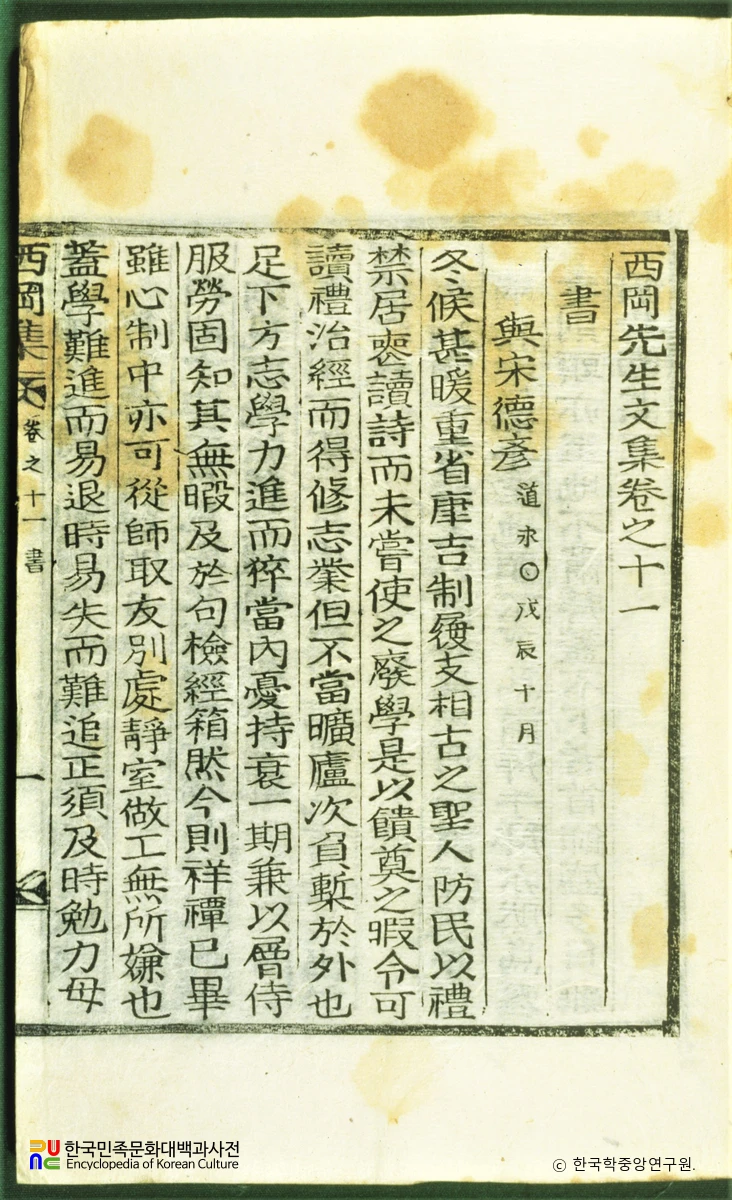 西岡先生文集卷之十一
書
與宋德彥 道永○戊辰十月
冬候甚暖重省康吉制履支相古之聖人防民以禮
禁居喪讀詩而未嘗使之廢學是以饋奠之暇令可
讀禮治經而得修志業但不當曠廬次負慙於外也
足下方志學力進而猝當內憂持衰一期兼以層侍
服勞固知其無暇及於句檢經箱然今則祥禫已畢
雖心制中亦可從師取友別處靜室做工無所嫌也
蓋學難進而易退時易失而難追正須及時勉力毋
西岡集 卷之十一 書 一
한국민족문화대백과사전
Encyclopedia of Korean Culture
ⓒ 한국학중앙연구원.